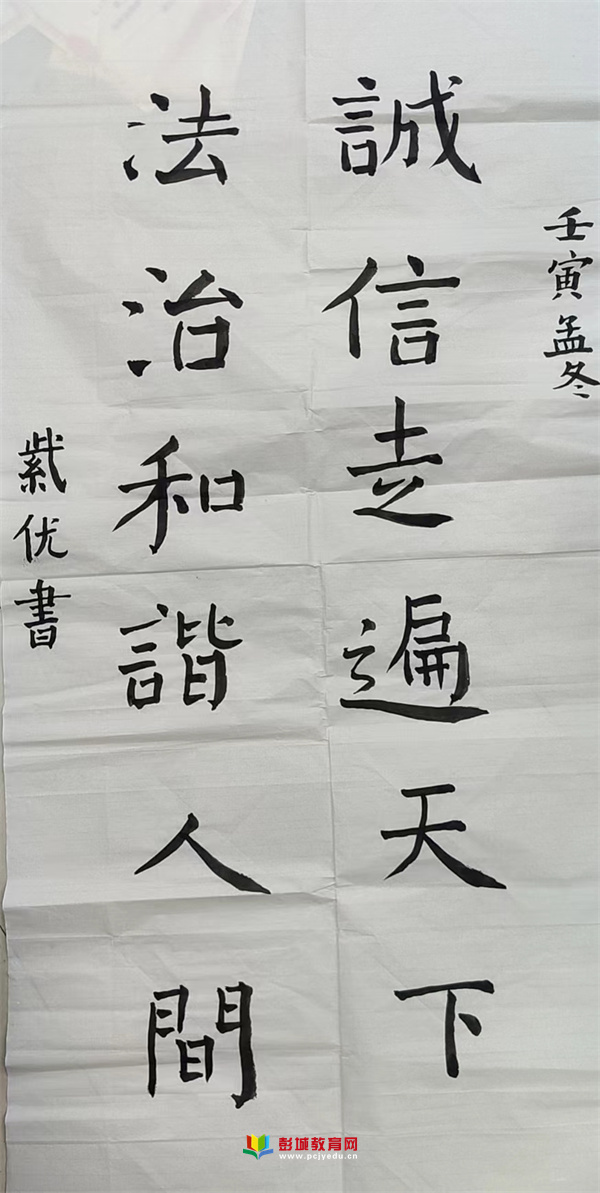 壬寅孟冬
誠信走遍天下
法治和諧人間
优書
彭城教育网
www.pcjyedu.cn